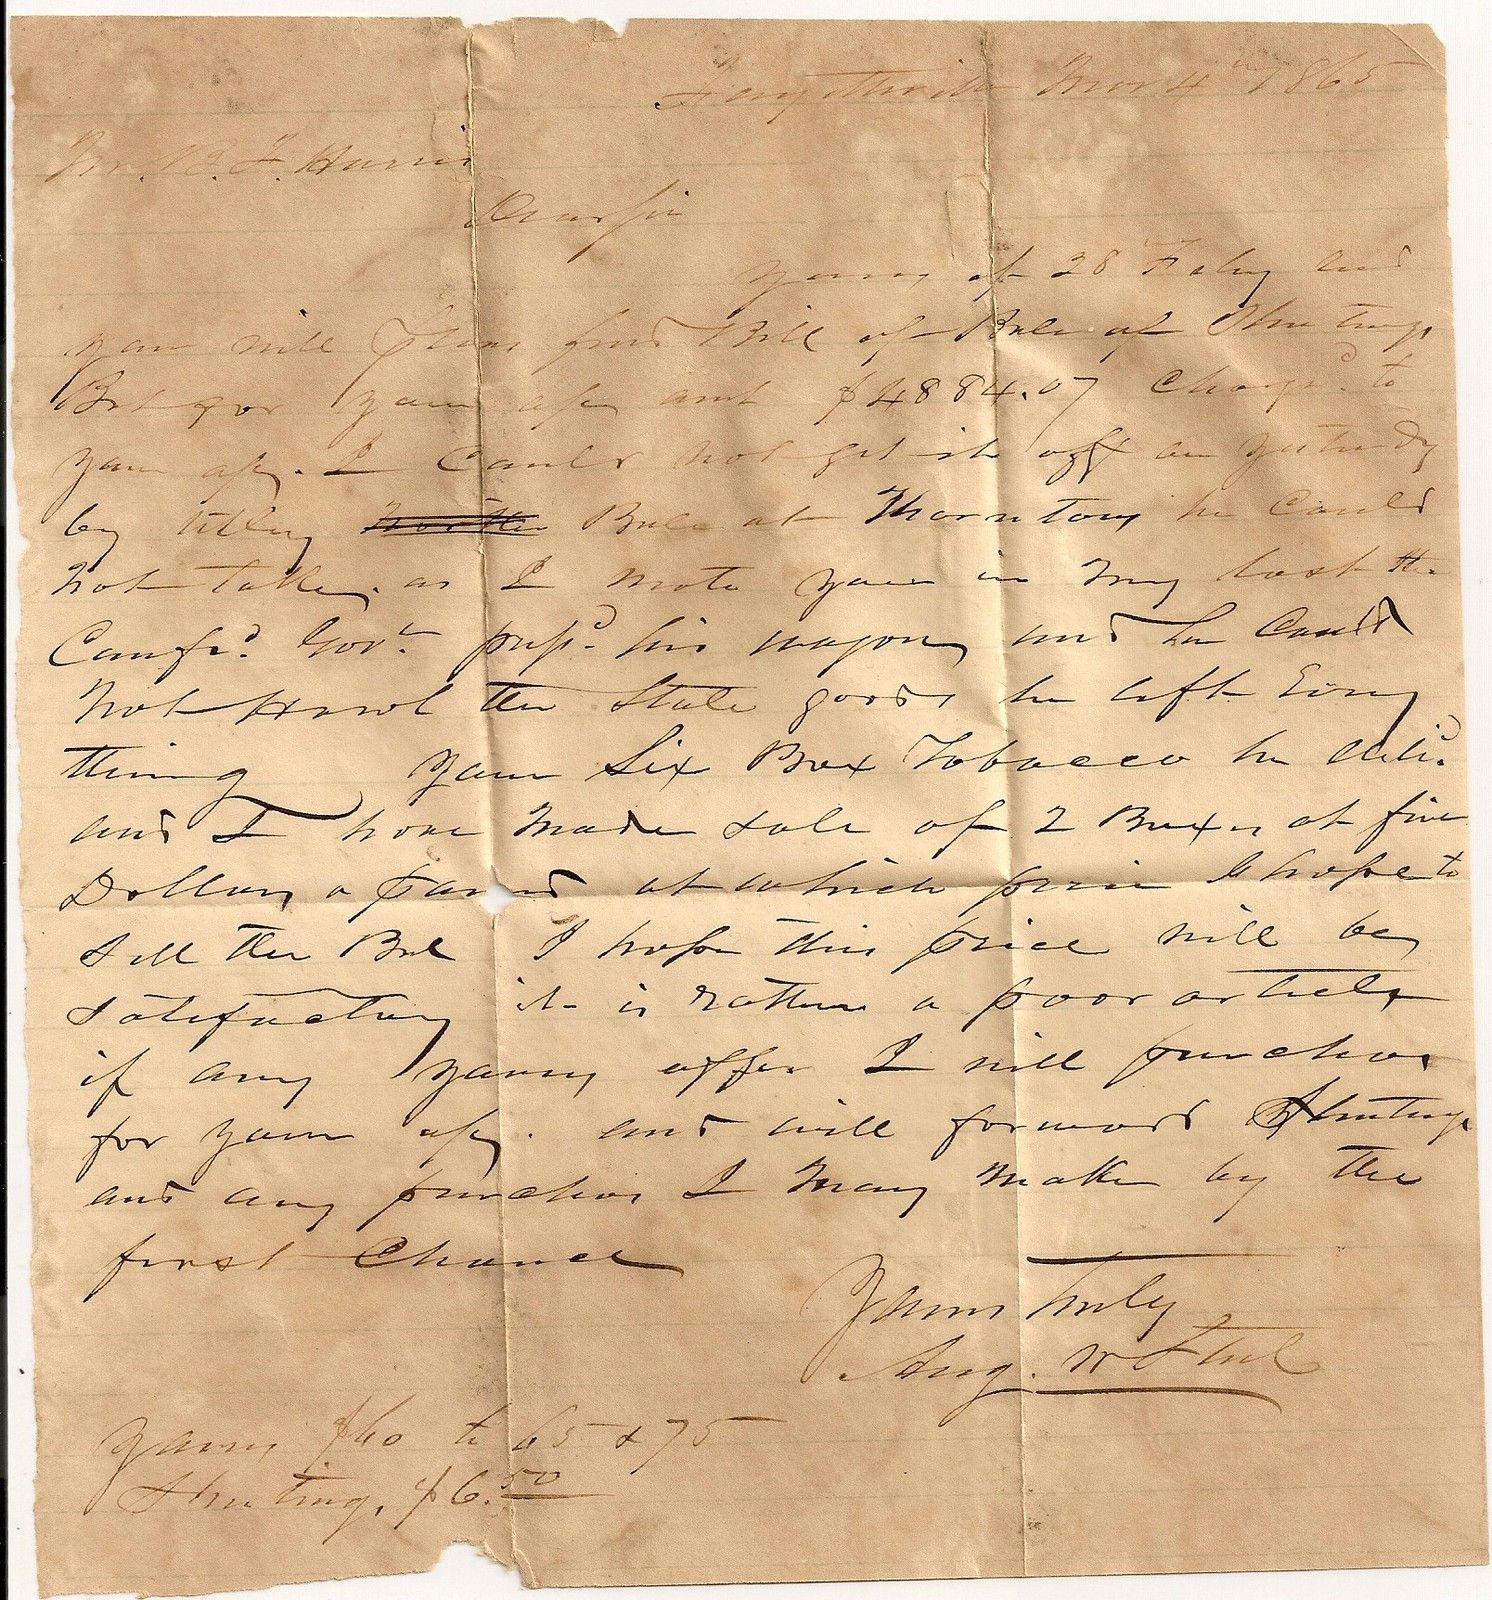 Fayetteville Mar 4th 1865
Mr. B. F. Harris
Dear Sir
yours of 28 Feby and
you will please find Bill of Bale of Sheetings
Bot for your a/c amt $4884.07 Chargd. to
your a/c. I Could not get it off on yesterday
by Bale at Thorntons he Could
not take, as I wrote you in my last the
Confed. Govt. pressd. his wagons and he Could
not Hawl the State goods he left Every
thing your Six Box Tobacco he delid.
and I have made sale of 2 Boxes at five
Dollars a pound at which price I hope to
sell the Bal I hope this price will be
satisfactory it is rather a poor article
if any yarns offer I will purchase
for your a/c. and will forward Sheetings
and any purchases I may make by the
first Chance
Yours truly
Aug. W Steel
yarns $60 to 65 & 75
Sheeting, $6.50